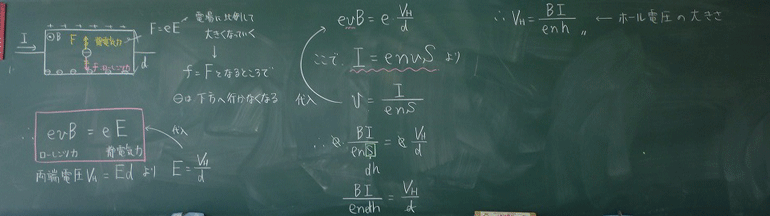 I
B
F 静電気力
⊖
f=ローレンツ力
d
F=eE
電場に比例して
大きくなっていく
f=Fとなるところで
⊖は下方へ行かなくなる
∴ evB = eE
ローレンツ力 静電気力
代入
両端電圧 V_H = Ed より E = V_H/d
evB = e・V_H/d
ここで、I = envS より
代入
v = I/enS
∴ e・BI/enS = e・V_H/d
dh
BI/endh = V_H/d
∴ V_H = BI/enh 〃 ← ホール電圧の大きさ